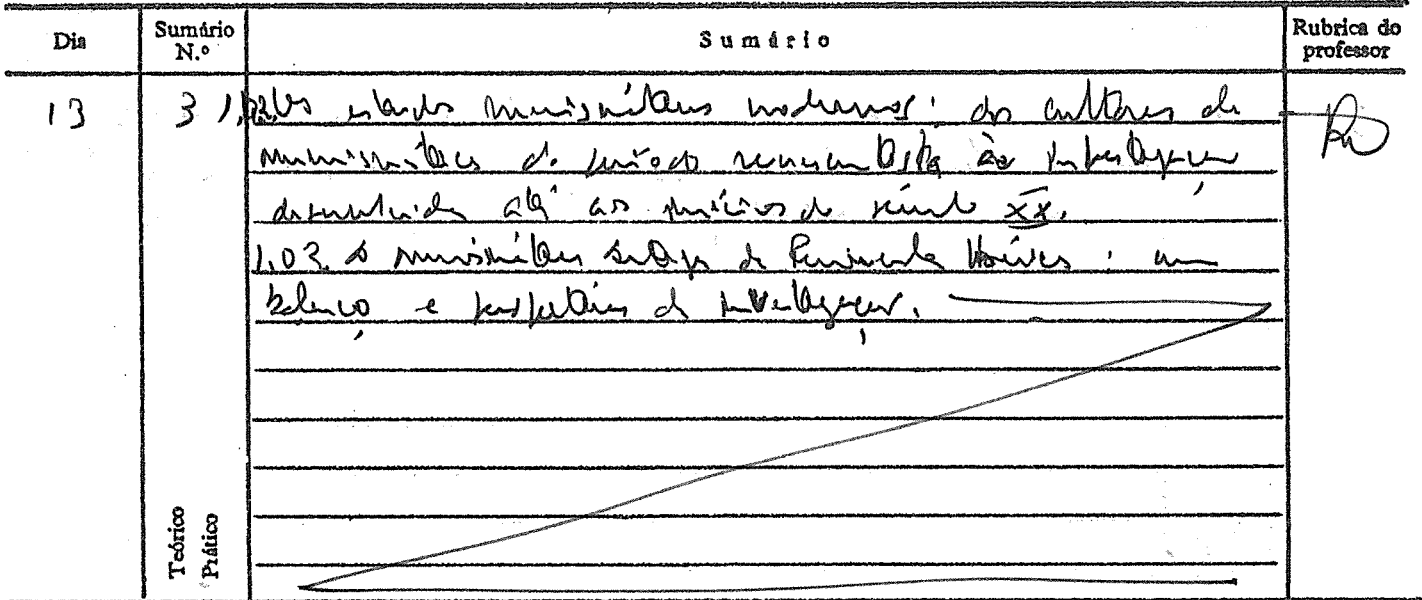 Dia
Sumário N.º
Sumário
Rubrica do professor
13
3
1.02. Os estudos numismáticos modernos: dos cultores da
numismática do período renascentista às investigações
desenvolvidas até aos inícios do século XX.
1.03. A numismática antiga da Península Ibérica: um
balanço e perspetivas de investigação.
Teórico
Prático